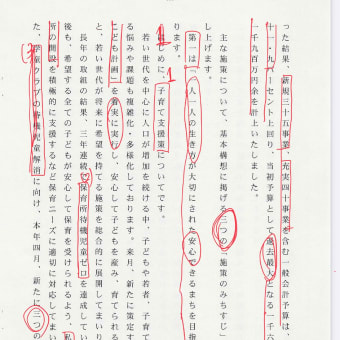 った結果、新規三十五事業、充実四十事業を含む一般会計予算は、
十一・九パーセント上回り、当初予算として過去最大となる一千六
一千九百万円余を計上いたしました。
主な施策について、基本構想に掲げる三つの「施策のみちすじ」
し上げます。
第一は、「一人一人の生き方が大切にされた安心できるまちを目指
ります。
はじめに、子育て支援策についてです。
若い世代を中心に人口が増加を続ける中、子どもや若者、子育て
る悩みや課題も複雑化・多様化しております。来月、新たに策定す
こども計画」を着実に実行し、安心して子どもを産み、育てられる
と、若い世代が将来に希望を持てる施策を総合的に展開してまいり
長年の取組の結果、三年連続、保育所待機児童ゼロを達成してい
後も、希望する全ての子どもが安心して保育を受けられるよう、私
所の開設を積極的に支援するなど保育ニーズに適切に対応してまい
た、学童クラブの待機児童解消に向け、本年四月、新たに三つの
1
1
3